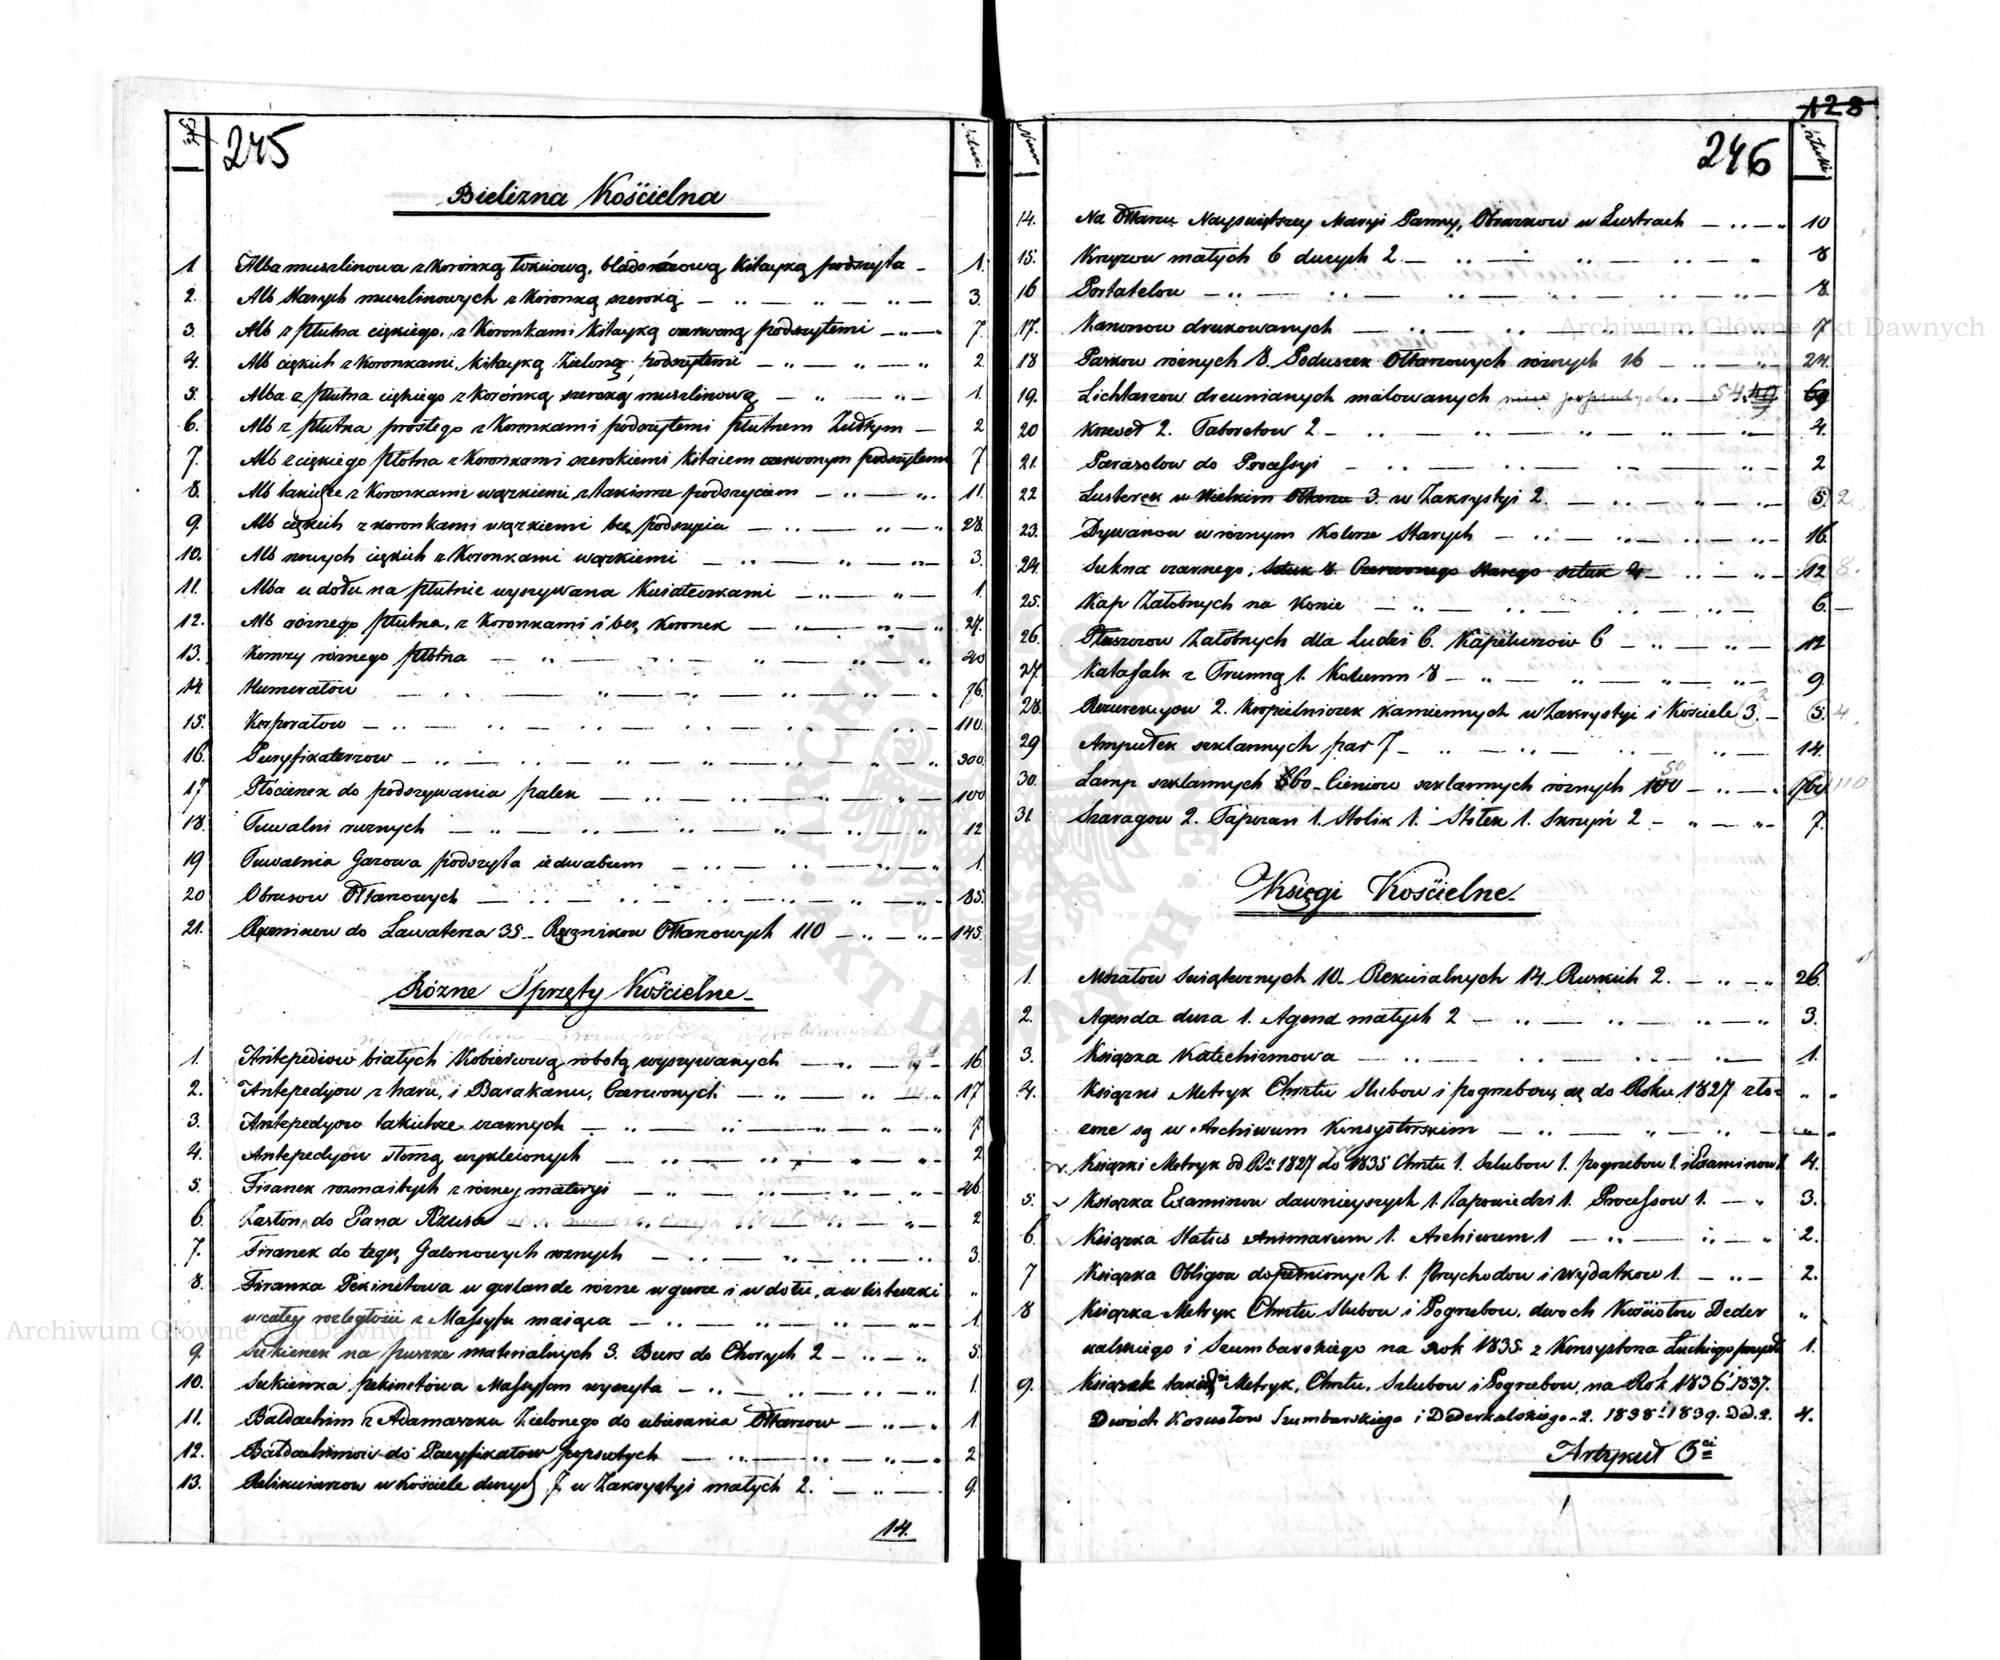 245
Sztuki
Bielizna Kościelna
1. Alba muszlinowa z Koronką łokciową, bladoróżową Kitayką podszyta 1.
2. Alb starych muszlinowych z Koronką szeroką 3.
3. Alb z płutna ciękiego, z Koronkami Kitayką czerwoną podszytemi 7.
4. Alb cięzkich z Koronkami, Kitayką Zieloną, podszytemi 2.
5. Alba z płutna cięzkiego z Koronką szeroką muszlinową 1.
6. Alb z płutna prostego z Koronkami podszytemi płutnem Żułtym 2
7. Alb z cięzkiego płotna z Koronkami szerokiemi Kitaiem czerwonym podszytemi 7
8. Alb takiże z Koronkami wązkiemi z takimze podszyciem 11.
9. Alb cięzkich z koronkami wązkiemi bez podszycia 28.
10. Alb nowych cięzkich z Koronkami wązkiemi 3.
11. Alba u dołu na płutnie wyszywana Kwiateczkami 1.
12. Alb roznego płutna, z Koronkami i bez Koronek 24.
13. Komży różnego płótna 20
14. Humerałow 76.
15. Korporałow 110.
16. Puryfikaterzow 300.
17 Płócienek do podszywania palek 100
18. Tuwalni rucznych 12
19 Tuwalnia Gazowa podszyta iedwabiem 1.
20 Obrusow Ołtarzowych 85.
21. Ręcznikow do Lawaterza 35 Ręcznikow Ołtarzowych 110 145.
Rózne Sprzęty Kościelne
1. Antepediow białych Kobiercową robotą wyszywanych 16.
2. Antepedyow z haru, i Barakanu, Czerwonych 17
3. Antepedyow takichże czarnych 7
4. Antepedyów słomą wykleionych 2
5. Firanek rozmaitych z rózney materyi 26.
6. Zasłon do Pana Jezusa 2
7. Firanek do tegoż Galonowych roznych 3.
8. Firanka Pekinetowa w girlande rózne w gurze i w dole, a w listeczki
w całey rozległości z Massyfu maiąca 1.
9. Sukienek na puszke materialnych 3. Burs do Chorych 2 5.
10. Sukienka pekinetowa Massyfem wyszyta 1.
11. Baldachim z Adamaszku Zielonego do ubierania Ołtarzow 1.
12. Baldachimow do Puryfikatow popsutych 2
13. Relikwiarzow w Kościele durzych 7 w Zakrystyi małych 2. 9.
14.
128
246
Sztuki
14. Na Ołtarzu Nayświętszey Maryi Panny, Obrazkow w Lustrach 10
15. Krzyżow małych 6 durzych 2. 8
16 Portatelow 8.
17. Kanonow drukowanych 7
18 Parkow róznych 8. Poduszek Ołtarzowych róznych 16 24.
19. Lichtarzow drewnianych malowanych 54 69
20 Krzeseł 2. Taboretow 2 4.
21. Parazolow do Processyi 2
22 Lusterek w Wielkim Ołtarzu 3. w Zakrystyi 2. 5. 2.
23. Dywanow w róznym Kolorze Starych 16.
24. Sukna czarnego, Sztuk 8. Czerwonego starego sztuk 4 12 8.
25. Kap Żałobnych na Konie 6.
26. Płaszczow Żałobnych dla Ludzi 6. Kapeluszow 6 12
27. Katafalk z Trumną 1. Kolumn 8 9.
28. Rezurekcyow 2. Kropielniczek Kamiennych w Zakrystyi i Kościele 3. 5. 4.
29 Ampułek szklannych par 7 14.
30. Lamp szklannych 60 Cieniow szklannych róznych 100 50 760 110
31 Szaragow 2. Tapczan 1. Stolik 1. Stołek 1. Skrzyń 2 7.
Księgi Kościelne
1. Mszałow Swiątecznych 10. Rekwialnych 14. Ruskich 2. 26.
2. Agenda duza 1. Agend małych 2 3.
3. Ksiązka Katechizmowa 1.
4. Ksiązki Metryk Chrztu Slubow i pogrzebow, aż do Roku 1827 zło=
zone są w Archiwum Konsystorskim
Ksiązki Metryk od Ru 1827 do 1835 Chrztu 1. Szlubow 1. pogrzebow 1. i Examinow 1. 4.
5. Ksiązka Examinow dawnieyszych 1. Zapowiedzi 1. Processow 1. 3.
6 Ksiązka Status Animarum 1. Archiwum 1 2.
7 Ksiązka Obligow dopełnionych 1. Przychodow i wydatkow 1. 2.
8 Ksiązka Metryk Chrztu Slubow i Pogrzebow, dwoch Kosciołow Deder
kalskiego i Szumbarskiego na rok 1835. z Konsystorza Łuckiego 1.
9. Ksiązek Metryk, Chrztu, Szlubow i Pogrzebow, na Rok 1836 i 1837.
Dwóch Kosciołow Szumbarskiego i Dederkalskiego 2. 1838 i 1839. Ded. 2. 4.
Artykuł 6ci